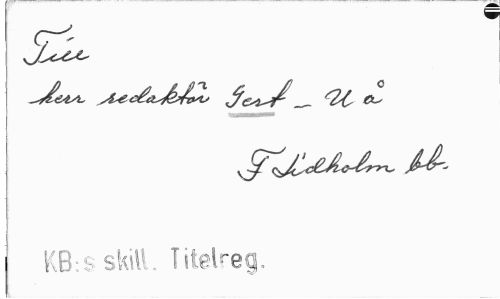 Till
herr redaktör Gert – U å
F Lidholm bb.
KB:s skill. Titelreg.